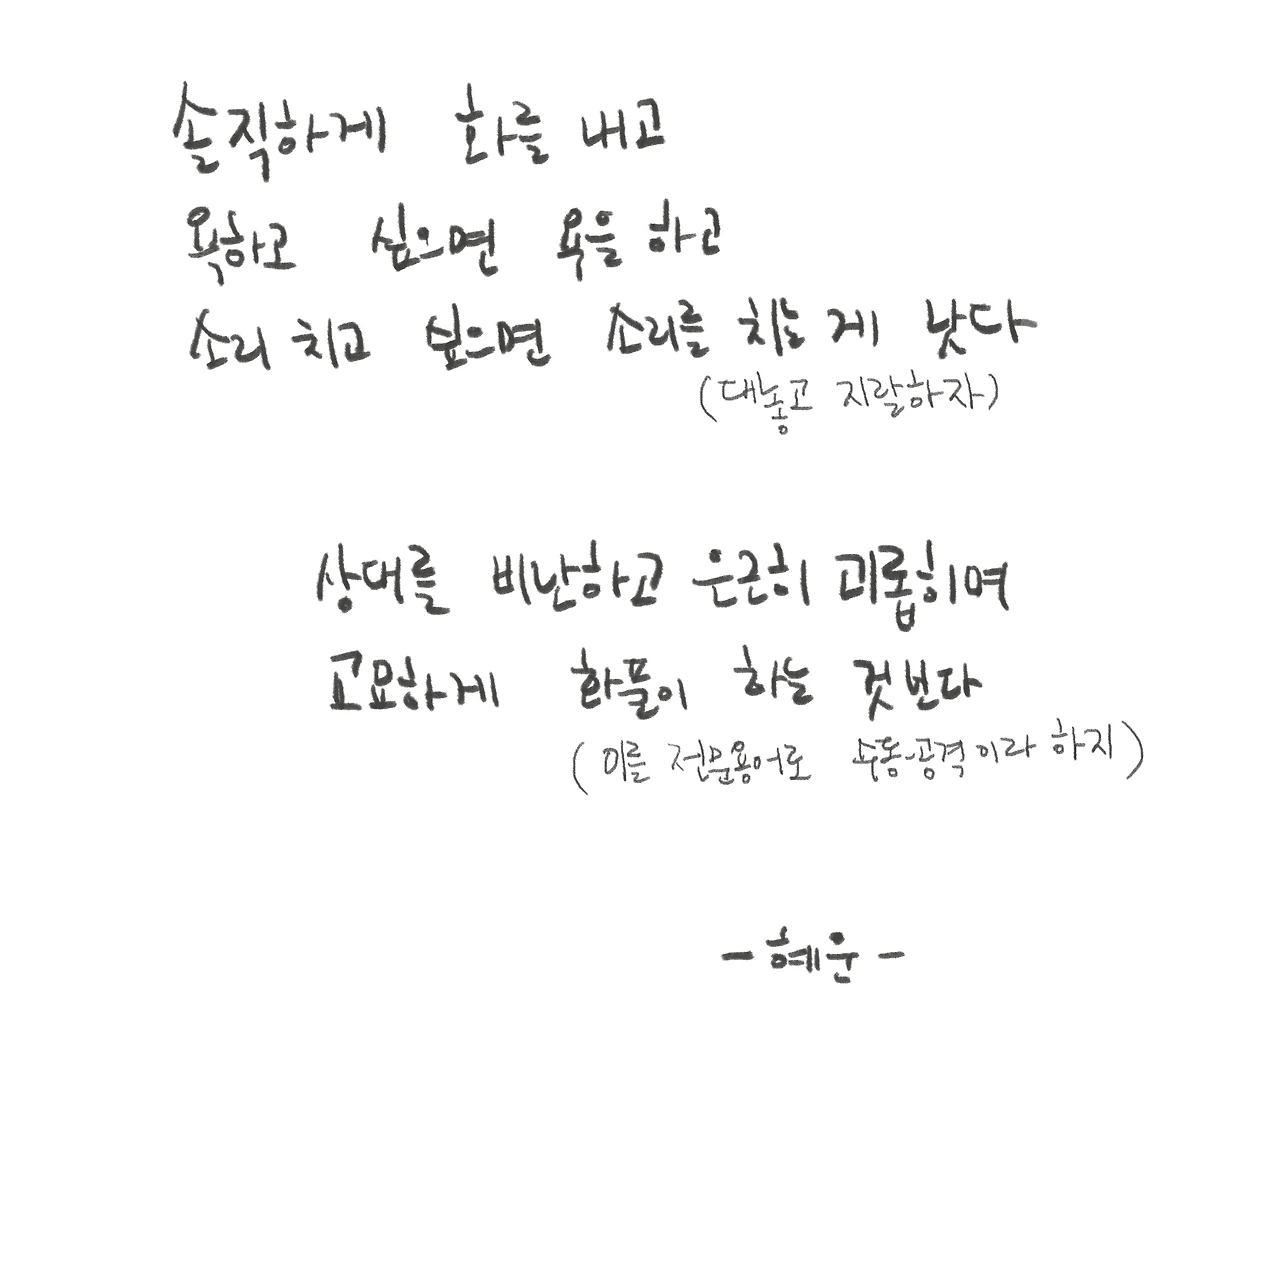 솔직하게 화를 내고
욕하고 싶으면 욕을 하고
소리 치고 싶으면 소리를 치는 게 낫다
(대놓고 지랄하자)
상대를 비난하고 은근히 괴롭히며
고요하게 화풀이 하는 것보다
(이를 전문용어로 수동-공격이라 하지)
- 혜운 -